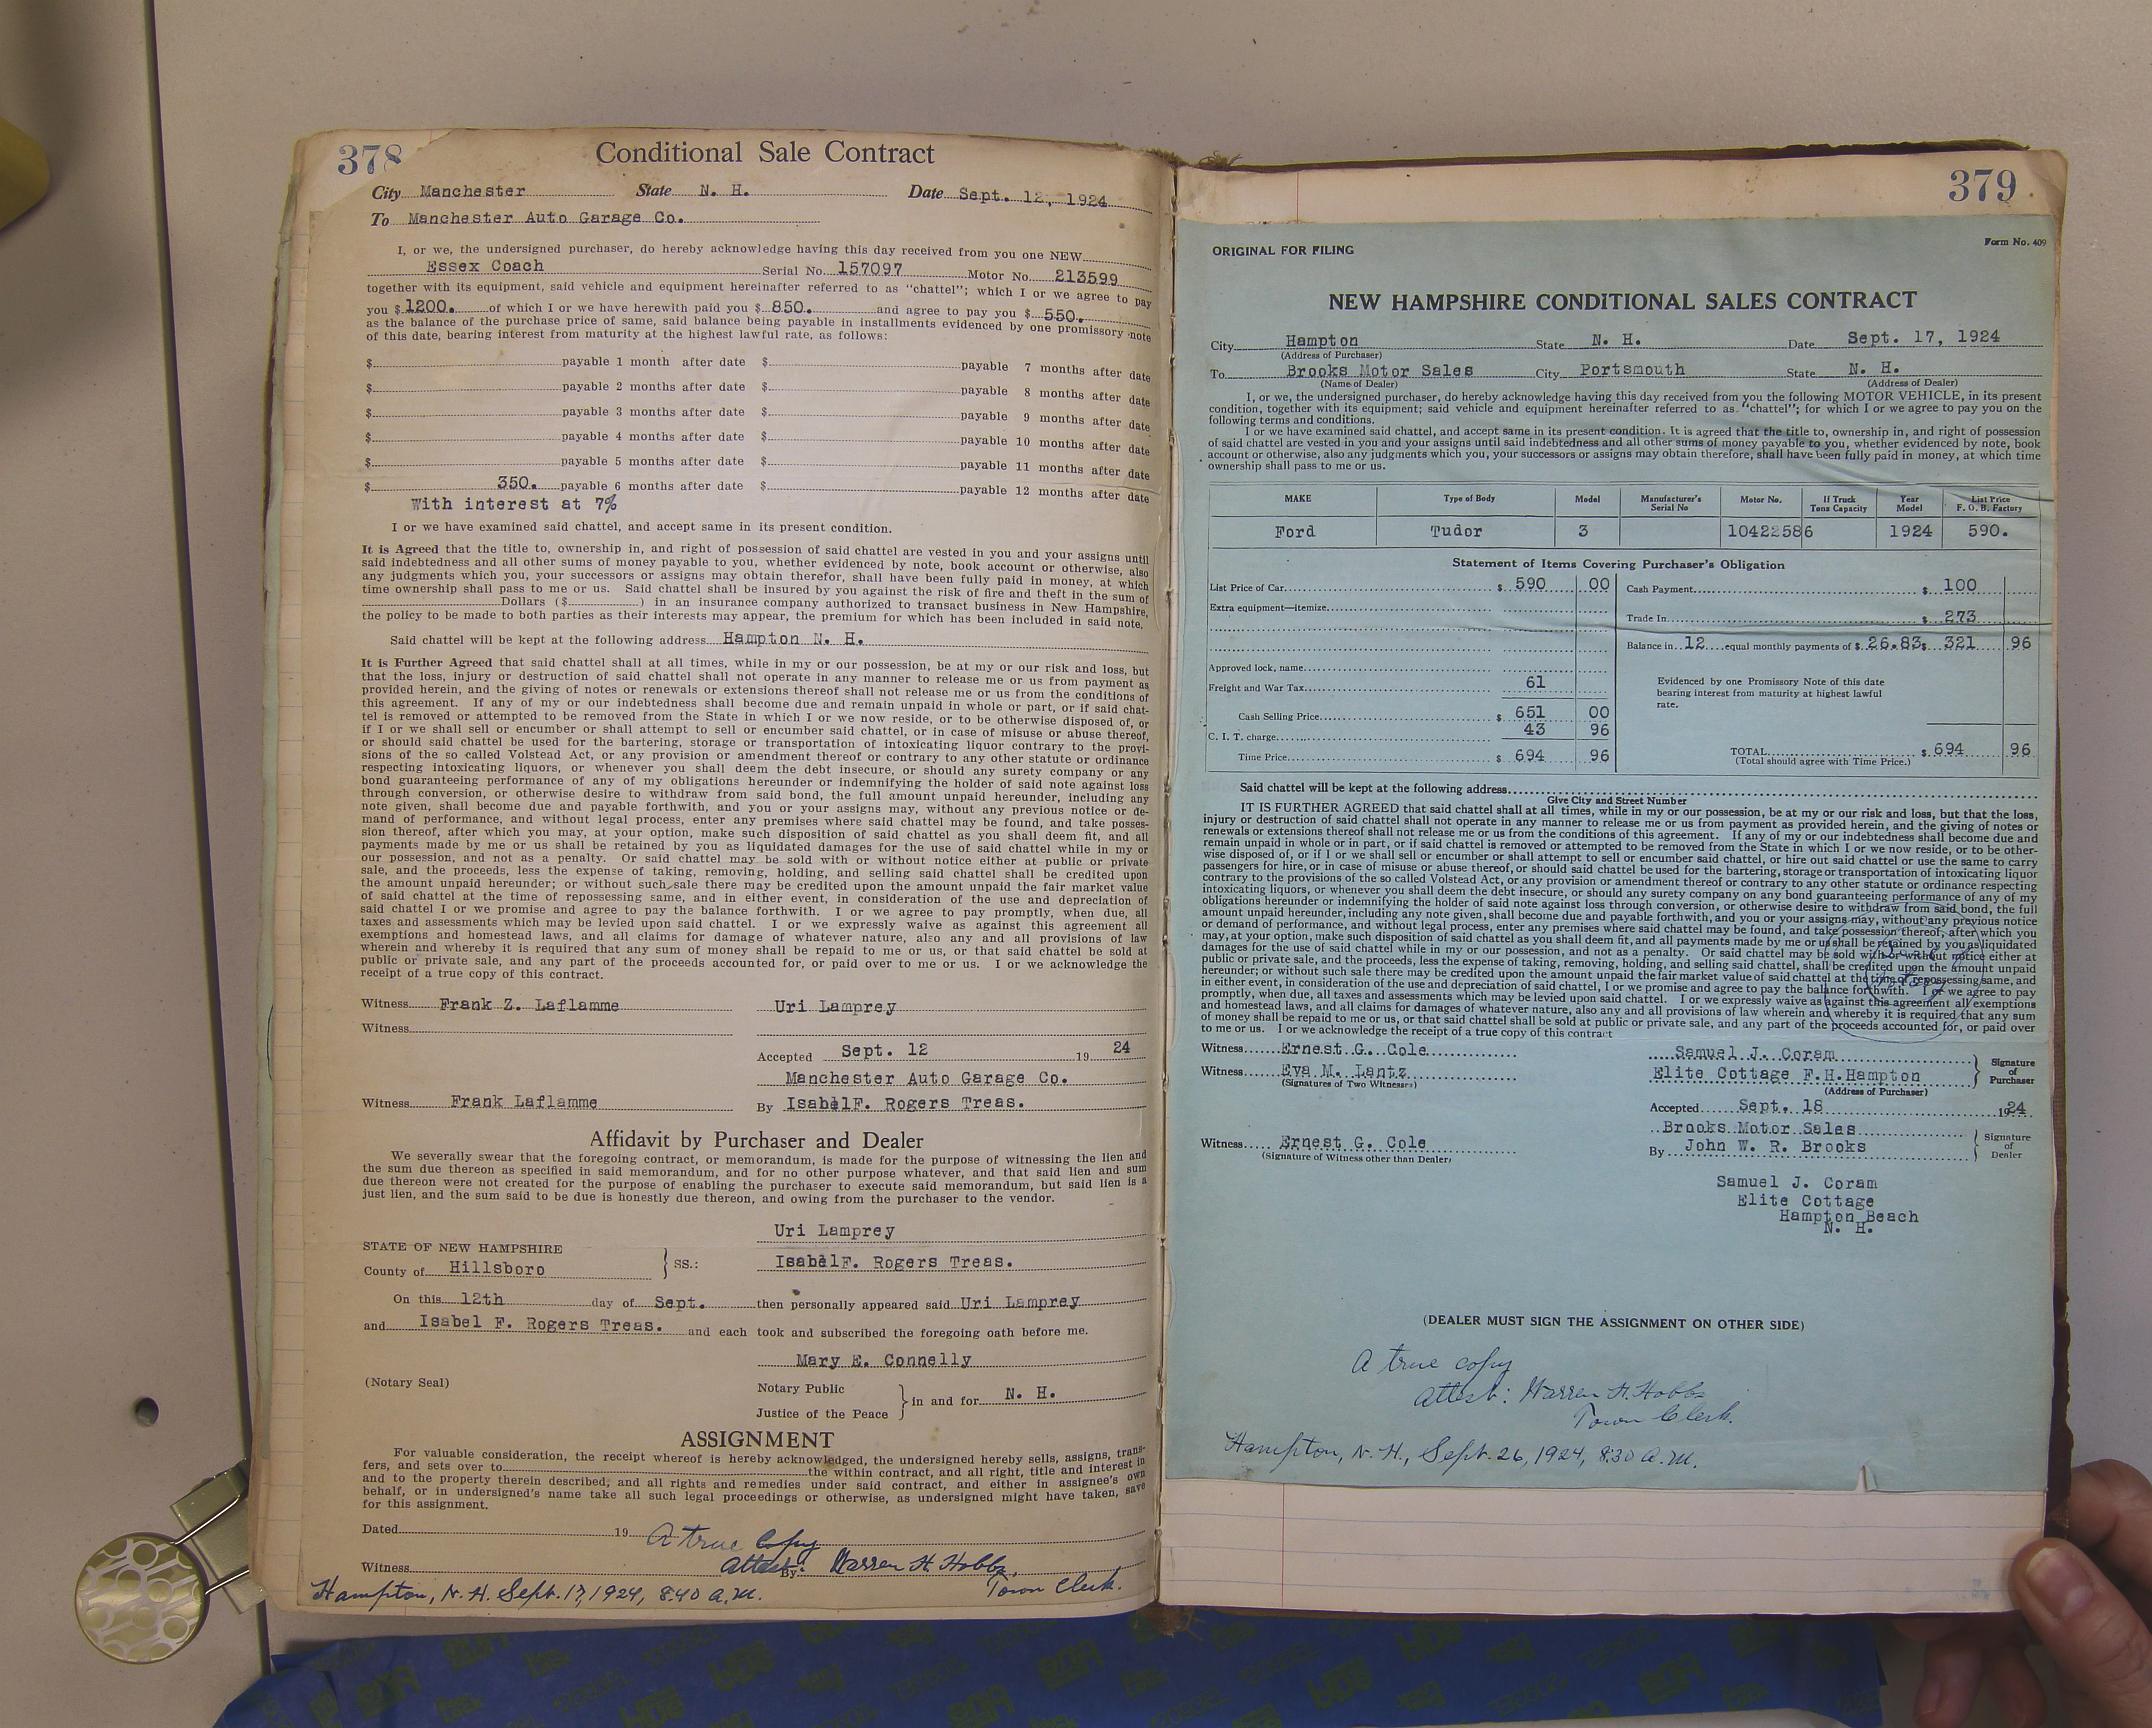 378
Conditional Sale Contract
City Manchester State N. H. Date Sept. 12, 1924
To Manchester Auto Garage Co.
I, or we, the undersigned purchaser, do hereby acknowledge having this day received from you one NEW
Essex Coach Serial No. 157097 Motor No. 213599
together with its equipment, said vehicle and equipment hereinafter referred to as "chattel"; which I or we agree to pay
you $ 1200. of which I or we have herewith paid you $ 850. and agree to pay you $ 550.
as the balance of the purchase price of same, said balance being payable in installments evidenced by one promissory note
of this date, bearing interest from maturity at the highest lawful rate, as follows:
$ payable 1 month after date $ payable 7 months after date
$ payable 2 months after date $ payable 8 months after date
$ payable 3 months after date $ payable 9 months after date
$ payable 4 months after date $ payable 10 months after date
$ payable 5 months after date $ payable 11 months after date
$ 350. payable 6 months after date $ payable 12 months after date
With interest at 7%
I or we have examined said chattel, and accept same in its present condition.
It is Agreed that the title to, ownership in, and right of possession of said chattel are vested in you and your assigns until
said indebtedness and all other sums of money payable to you, whether evidenced by note, book account or otherwise, also
any judgments which you, your successors or assigns may obtain therefor, shall have been fully paid in money, at which
time ownership shall pass to me or us. Said chattel shall be insured by you against the risk of fire and theft in the sum of
Dollars ($ ) in an insurance company authorized to transact business in New Hampshire,
the policy to be made to both parties as their interests may appear, the premium for which has been included in said note.
Said chattel will be kept at the following address Hampton N. H.
It is Further Agreed that said chattel shall at all times, while in my or our possession, be at my or our risk and loss, but
that the loss, injury or destruction of said chattel shall not operate in any manner to release me or us from payment as
provided herein, and the giving of notes or renewals or extensions thereof shall not release me or us from the conditions of
this agreement. If any of my or our indebtedness shall become due and remain unpaid in whole or part, or if said chat-
tel is removed or attempted to be removed from the State in which I or we now reside, or to be otherwise disposed of, or
if I or we shall sell or encumber or shall attempt to sell or encumber said chattel, or in case of misuse or abuse thereof,
or should said chattel be used for the bartering, storage or transportation of intoxicating liquor contrary to the provi-
sions of the so called Volstead Act, or any provision or amendment thereof or contrary to any other statute or ordinance
respecting intoxicating liquors, or whenever you shall deem the debt insecure, or should any surety company or any
bond guaranteeing performance of any of my obligations hereunder or indemnifying the holder of said note against loss
through conversion, or otherwise desire to withdraw from said bond, the full amount unpaid hereunder, including any
note given, shall become due and payable forthwith, and you or your assigns may, without any previous notice or de-
mand of performance, and without legal process, enter any premises where said chattel may be found, and take posses-
sion thereof, after which you may, at your option, make such disposition of said chattel as you shall deem fit, and all
payments made by me or us shall be retained by you as liquidated damages for the use of said chattel while in my or
our possession, and not as a penalty. Or said chattel may be sold with or without notice either at public or private
sale, and the proceeds, less the expense of taking, removing, holding, and selling said chattel shall be credited upon
the amount unpaid hereunder; or without such sale there may be credited upon the amount unpaid the fair market value
of said chattel at the time of repossessing same, and in either event, in consideration of the use and depreciation of
said chattel I or we promise and agree to pay the balance forthwith. I or we agree to pay promptly, when due, all
taxes and assessments which may be levied upon said chattel. I or we expressly waive as against this agreement all
exemptions and homestead laws, and all claims for damage of whatever nature, also any and all provisions of law
wherein and whereby it is required that any sum of money shall be repaid to me or us, or that said chattel be sold at
public or private sale, and any part of the proceeds accounted for, or paid over to me or us. I or we acknowledge the
receipt of a true copy of this contract.
Witness Frank Z. Laflamme Uri Lamprey
Witness
Accepted Sept. 12 19 24
Manchester Auto Garage Co.
Witness Frank Laflamme By IsabelF. Rogers Treas.
Affidavit by Purchaser and Dealer
We severally swear that the foregoing contract, or memorandum, is made for the purpose of witnessing the lien and
the sum due thereon as specified in said memorandum, and for no other purpose whatever, and that said lien and sum
due thereon were not created for the purpose of enabling the purchaser to execute said memorandum, but said lien is a
just lien, and the sum said to be due is honestly due thereon, and owing from the purchaser to the vendor.
Uri Lamprey
STATE OF NEW HAMPSHIRE
County of Hillsboro } SS.: IsabelF. Rogers Treas.
On this 12th day of Sept. then personally appeared said Uri Lamprey
and Isabel F. Rogers Treas. and each took and subscribed the foregoing oath before me.
Mary E. Connelly
(Notary Seal) Notary Public
Justice of the Peace } in and for N. H.
ASSIGNMENT
For valuable consideration, the receipt whereof is hereby acknowledged, the undersigned hereby sells, assigns, trans-
fers, and sets over to the within contract, and all right, title and interest in
and to the property therein described; and all rights and remedies under said contract, and either in assignee's own
behalf, or in undersigned's name take all such legal proceedings or otherwise, as undersigned might have taken, save
for this assignment.
Dated 19 A true Copy
Witness Attest: By: Warren H. Hobbs,
Hampton, N. H. Sept. 17, 1924, 8:40 A.M. Town Clerk.
379
ORIGINAL FOR FILING Form No. 409
NEW HAMPSHIRE CONDITIONAL SALES CONTRACT
City Hampton State N. H. Date Sept. 17, 1924
(Address of Purchaser)
To Brooks Motor Sales City Portsmouth State N. H.
(Name of Dealer) (Address of Dealer)
I, or we, the undersigned purchaser, do hereby acknowledge having this day received from you the following MOTOR VEHICLE, in its present
condition, together with its equipment; said vehicle and equipment hereinafter referred to as "chattel"; for which I or we agree to pay you on the
following terms and conditions.
I or we have examined said chattel, and accept same in its present condition. It is agreed that the title to, ownership in, and right of possession
of said chattel are vested in you and your assigns until said indebtedness and all other sums of money payable to you, whether evidenced by note, book
account or otherwise, also any judgments which you, your successors or assigns may obtain therefore, shall have been fully paid in money, at which time
ownership shall pass to me or us.
MAKE Type of Body Model Manufacturer's Serial No Motor No. If Truck Tons Capacity Year Model List Price F. O. B. Factory
Ford Tudor 3 10422586 1924 590.
Statement of Items Covering Purchaser's Obligation
List Price of Car $ 590 00 Cash Payment $ 100
Extra equipment—itemize
Trade In $ 273
Balance in 12 equal monthly payments of $ 26.83 $ 321 96
Approved lock, name
Freight and War Tax 61
Evidenced by one Promissory Note of this date
bearing interest from maturity at highest lawful
rate.
Cash Selling Price $ 651 00
C. I. T. charge 43 96
Time Price $ 694 96 TOTAL $ 694 96
(Total should agree with Time Price.)
Said chattel will be kept at the following address
Give City and Street Number
IT IS FURTHER AGREED that said chattel shall at all times, while in my or our possession, be at my or our risk and loss, but that the loss,
injury or destruction of said chattel shall not operate in any manner to release me or us from payment as provided herein, and the giving of notes or
renewals or extensions thereof shall not release me or us from the conditions of this agreement. If any of my or our indebtedness shall become due and
remain unpaid in whole or in part, or if said chattel is removed or attempted to be removed from the State in which I or we now reside, or to be other-
wise disposed of, or if I or we shall sell or encumber or shall attempt to sell or encumber said chattel, or hire out said chattel or use the same to carry
passengers for hire, or in case of misuse or abuse thereof, or should said chattel be used for the bartering, storage or transportation of intoxicating liquor
contrary to the provisions of the so called Volstead Act, or any provision or amendment thereof or contrary to any other statute or ordinance respecting
intoxicating liquors, or whenever you shall deem the debt insecure, or should any surety company on any bond guaranteeing performance of any of my
obligations hereunder or indemnifying the holder of said note against loss through conversion, or otherwise desire to withdraw from said bond, the full
amount unpaid hereunder, including any note given, shall become due and payable forthwith, and you or your assigns may, without any previous notice
or demand of performance, and without legal process, enter any premises where said chattel may be found, and take possession thereof, after which you
may, at your option, make such disposition of said chattel as you shall deem fit, and all payments made by me or us shall be retained by you as liquidated
damages for the use of said chattel while in my or our possession, and not as a penalty. Or said chattel may be sold with or without notice either at
public or private sale, and the proceeds, less the expense of taking, removing, holding, and selling said chattel, shall be credited upon the amount unpaid
hereunder; or without such sale there may be credited upon the amount unpaid the fair market value of said chattel at the time of repossessing same, and
in either event, in consideration of the use and depreciation of said chattel, I or we promise and agree to pay the balance forthwith. I or we agree to pay
promptly, when due, all taxes and assessments which may be levied upon said chattel. I or we expressly waive as against this agreement all exemptions
and homestead laws, and all claims for damages of whatever nature, also any and all provisions of law wherein and whereby it is required that any sum
of money shall be repaid to me or us, or that said chattel shall be sold at public or private sale, and any part of the proceeds accounted for, or paid over
to me or us. I or we acknowledge the receipt of a true copy of this contract
Witness Ernest G. Cole Samuel J. Coram
Witness Eva M. Lantz Elite Cottage F.H.Hampton } Signature of Purchaser
(Signatures of Two Witnesses) (Address of Purchaser)
Accepted Sept. 18 1924
Brooks Motor Sales
Witness Ernest G. Cole By John W. R. Brooks } Signature of Dealer
(Signature of Witness other than Dealer)
Samuel J. Coram
Elite Cottage
Hampton Beach
N. H.
(DEALER MUST SIGN THE ASSIGNMENT ON OTHER SIDE)
A true copy
Attest: Warren H. Hobbs
Town Clerk.
Hampton, N. H., Sept. 26, 1924, 8:30 A.M.